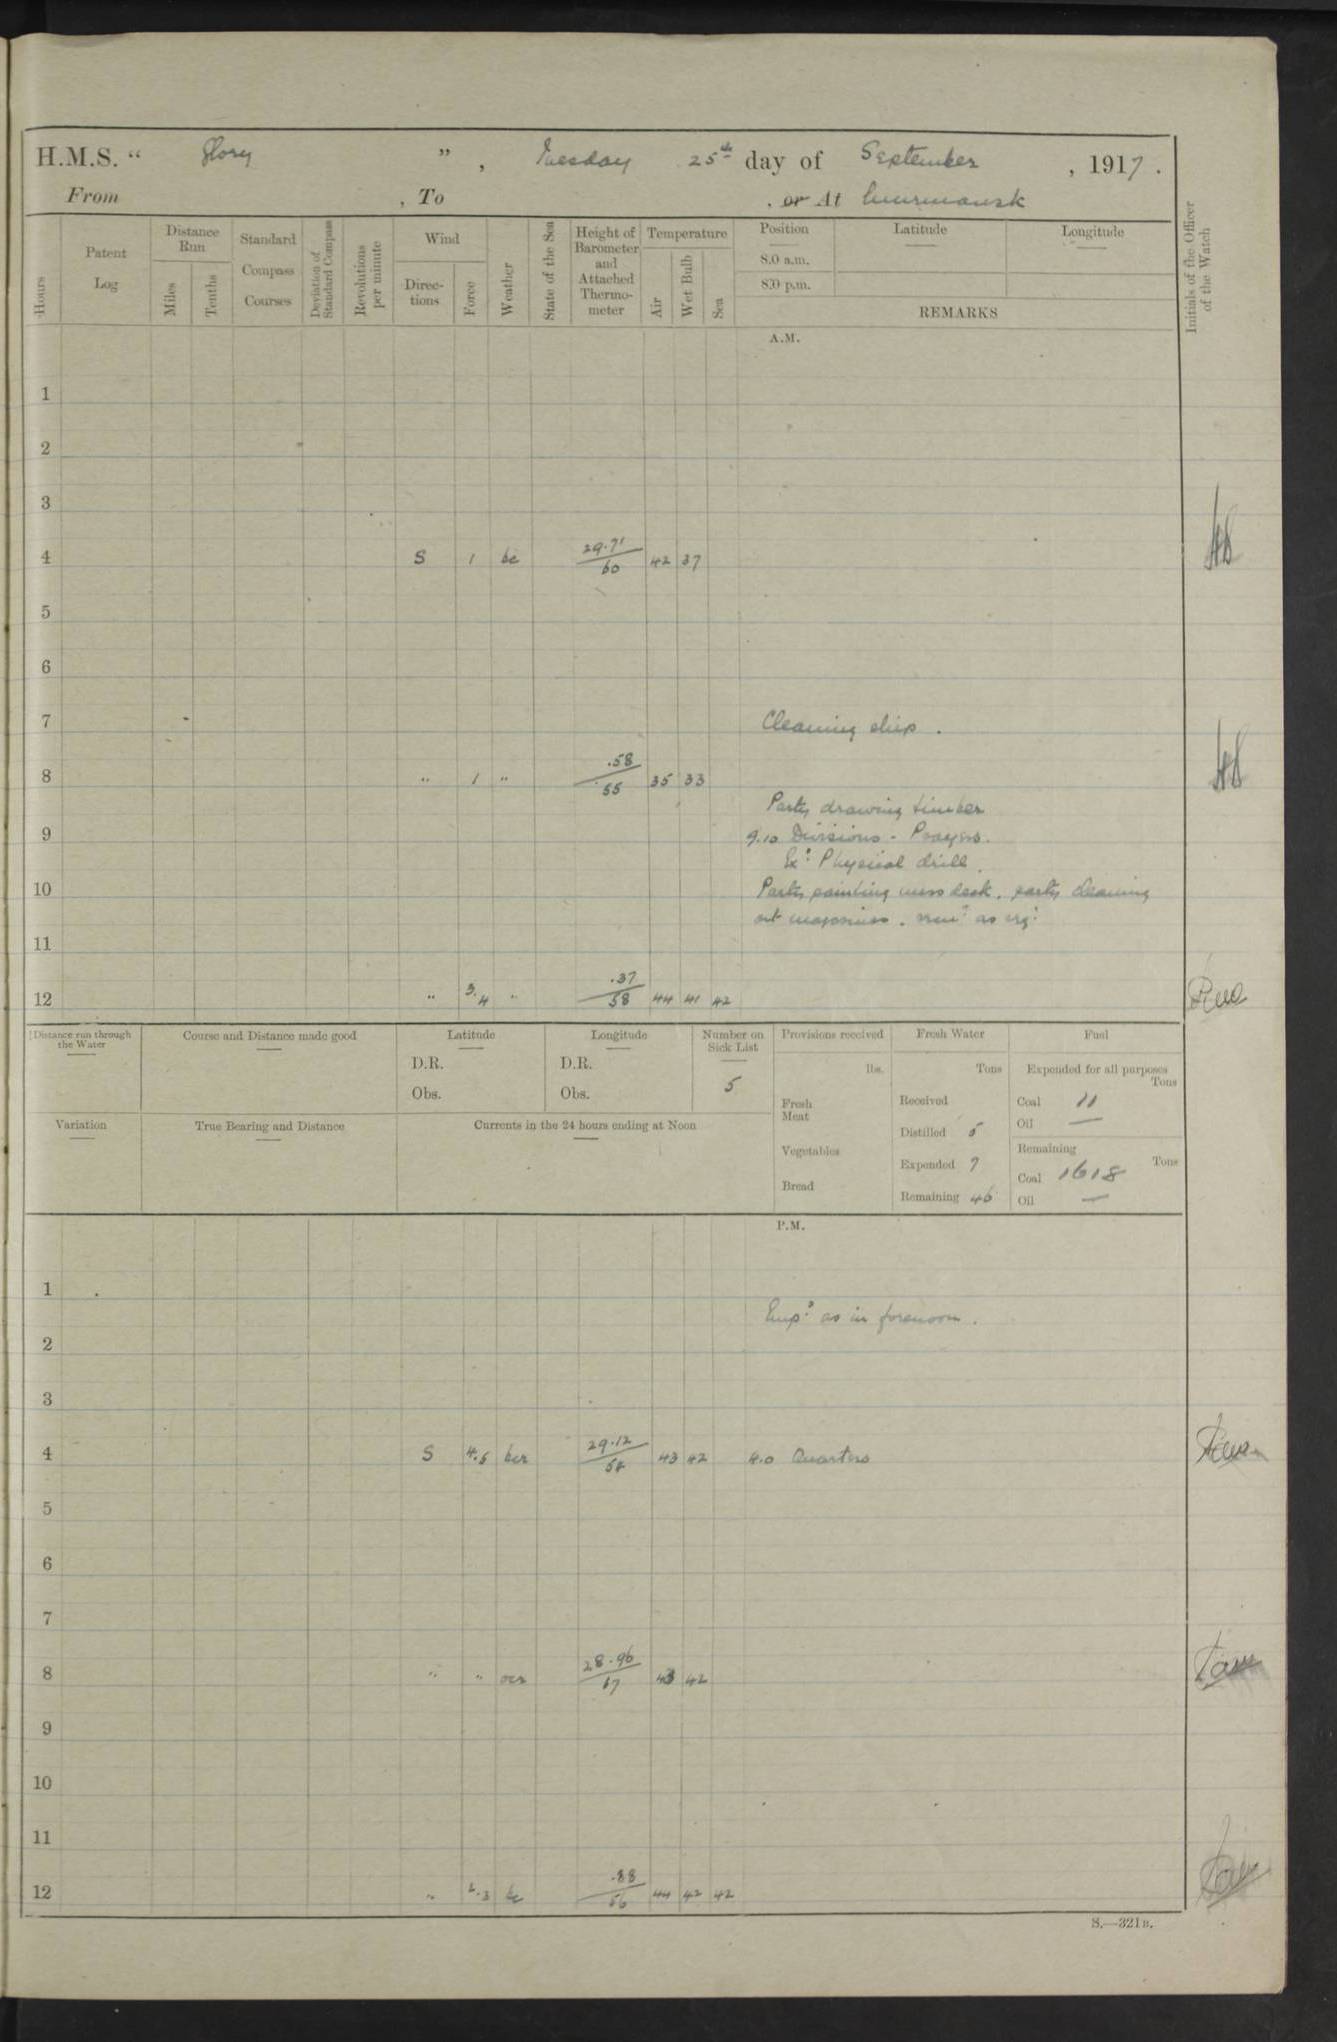 H.M.S. “ Glory ” , Tuesday 25th day of September , 1917 .
From , To , or At Murmansk
Hours
Patent Log
Distance Run
Miles
Tenths
Standard Compass Courses
Deviation of Standard Compass
Revolutions per minute
Wind
Directions
Force
Weather
State of the Sea
Height of Barometer and Attached Thermometer
Temperature
Air
Wet Bulb
Sea
Position
8.0 a.m.
8.0 p.m.
Latitude
Longitude
REMARKS
Initials of the Officer of the Watch
A.M.
1
2
3
4 S 1 bc 29.71 / 60 42 37
5
6
7 Cleaning ship .
8 " 1 " .58 / 55 35 33
Party drawing timber
9 9.10 Divisions - Prayers.
Ex: Physical drill .
10 Party painting mess deck , party cleaning
out magazines .
11
12 " 3.4 " .37 / 58 44 41 42
Distance run through the Water
Course and Distance made good
Latitude
D.R.
Obs.
Longitude
D.R.
Obs.
Number on Sick List
5
Provisions received
lbs.
Fresh Meat
Vegetables
Bread
Fresh Water
Tons
Received
Distilled 5
Expended 7
Remaining 46
Fuel
Expended for all purposes
Tons
Coal 11
Oil —
Remaining
Tons
Coal 1618
Oil —
Variation
True Bearing and Distance
Currents in the 24 hours ending at Noon
P.M.
1
Emp: as in forenoon .
2
3
4 S 4.5 bcr 29.12 / 58 43 42 4.0 Quarters
5
6
7
8 " " ocr 28.96 / 57 43 42
9
10
11
12 " 2.3 bc .88 / 56 44 42 42
S.—321B.